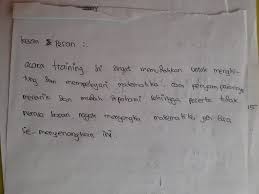 kesan & pesan :
acara training ini sangat membahkan untuk menghi-
tung dan mempelajari matematika. cara penyampaiannya
menarik dan mudah dipahami sehingga peserta tidak
merasa bosan nggak menyangka matematika jadi bisa
se-menyenangkan ini